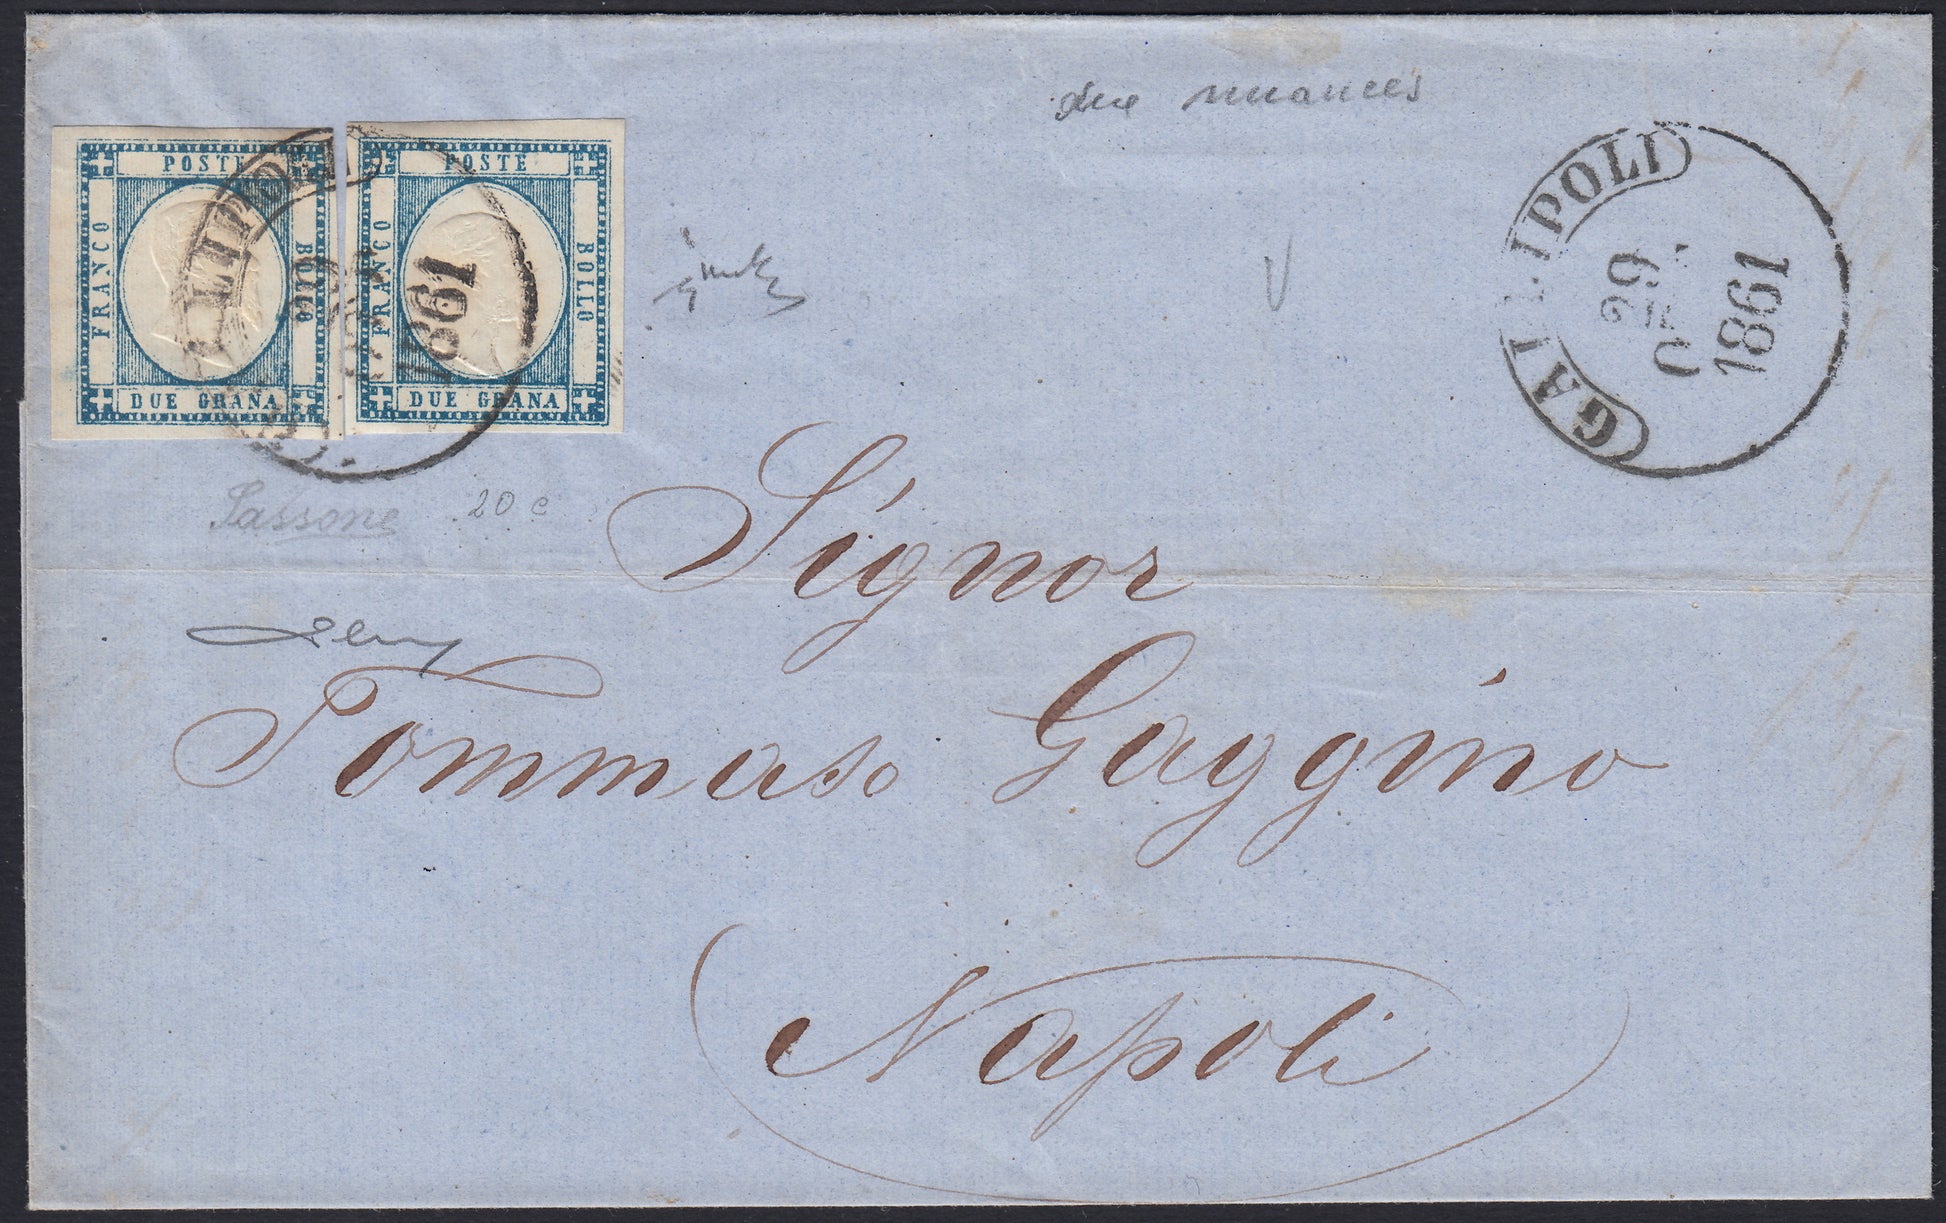 due nuances
POSTE
FRANCO
BOLLO
DUE GRANA
POSTE
FRANCO
BOLLO
DUE GRANA
1861
GALLIPOLI
1861
Sassone 20 c
Signor
Tommaso Gaggino
Napoli